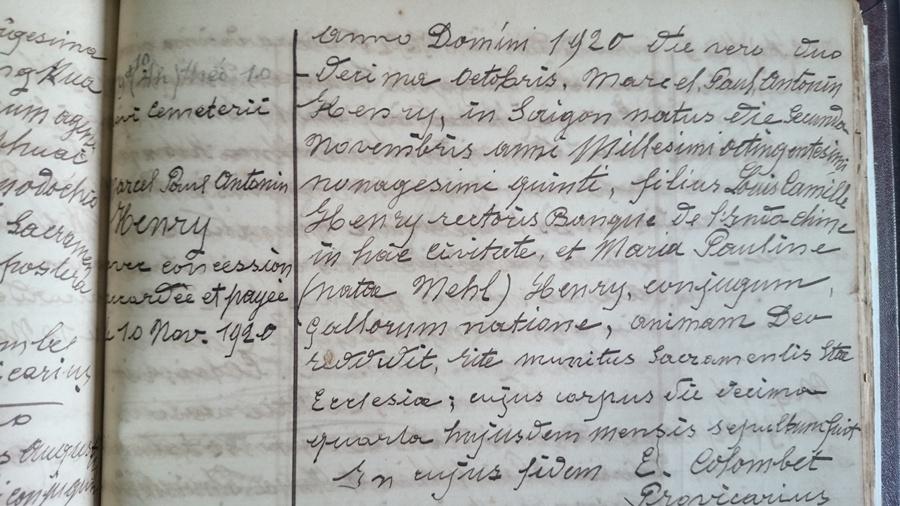 Anno Domini 1920 die vero duo
decima Octobris, Marcel Paul Antonin
Henry, in Saigon natus die secunda
Novembris anni Millesimi octingentesimi
nonagesimi quinti, filius Louis Camille
Henry rectoris Banque de l'Indochine
in hac civitate, et Maria Pauline
(nata Mehl) Henry, conjugum,
Gallorum natione, animam Deo
reddidit, rite munitus Sacramentis Stae
Ecclesiae; cujus corpus die decima
quarta hujusdem mensis sepultum fuit
In cujus fidem E. Colombet
Provicarius
cemeterii
Marcel Paul Antonin
Henry
avec concession
accordée et payée
10 Nov. 1920